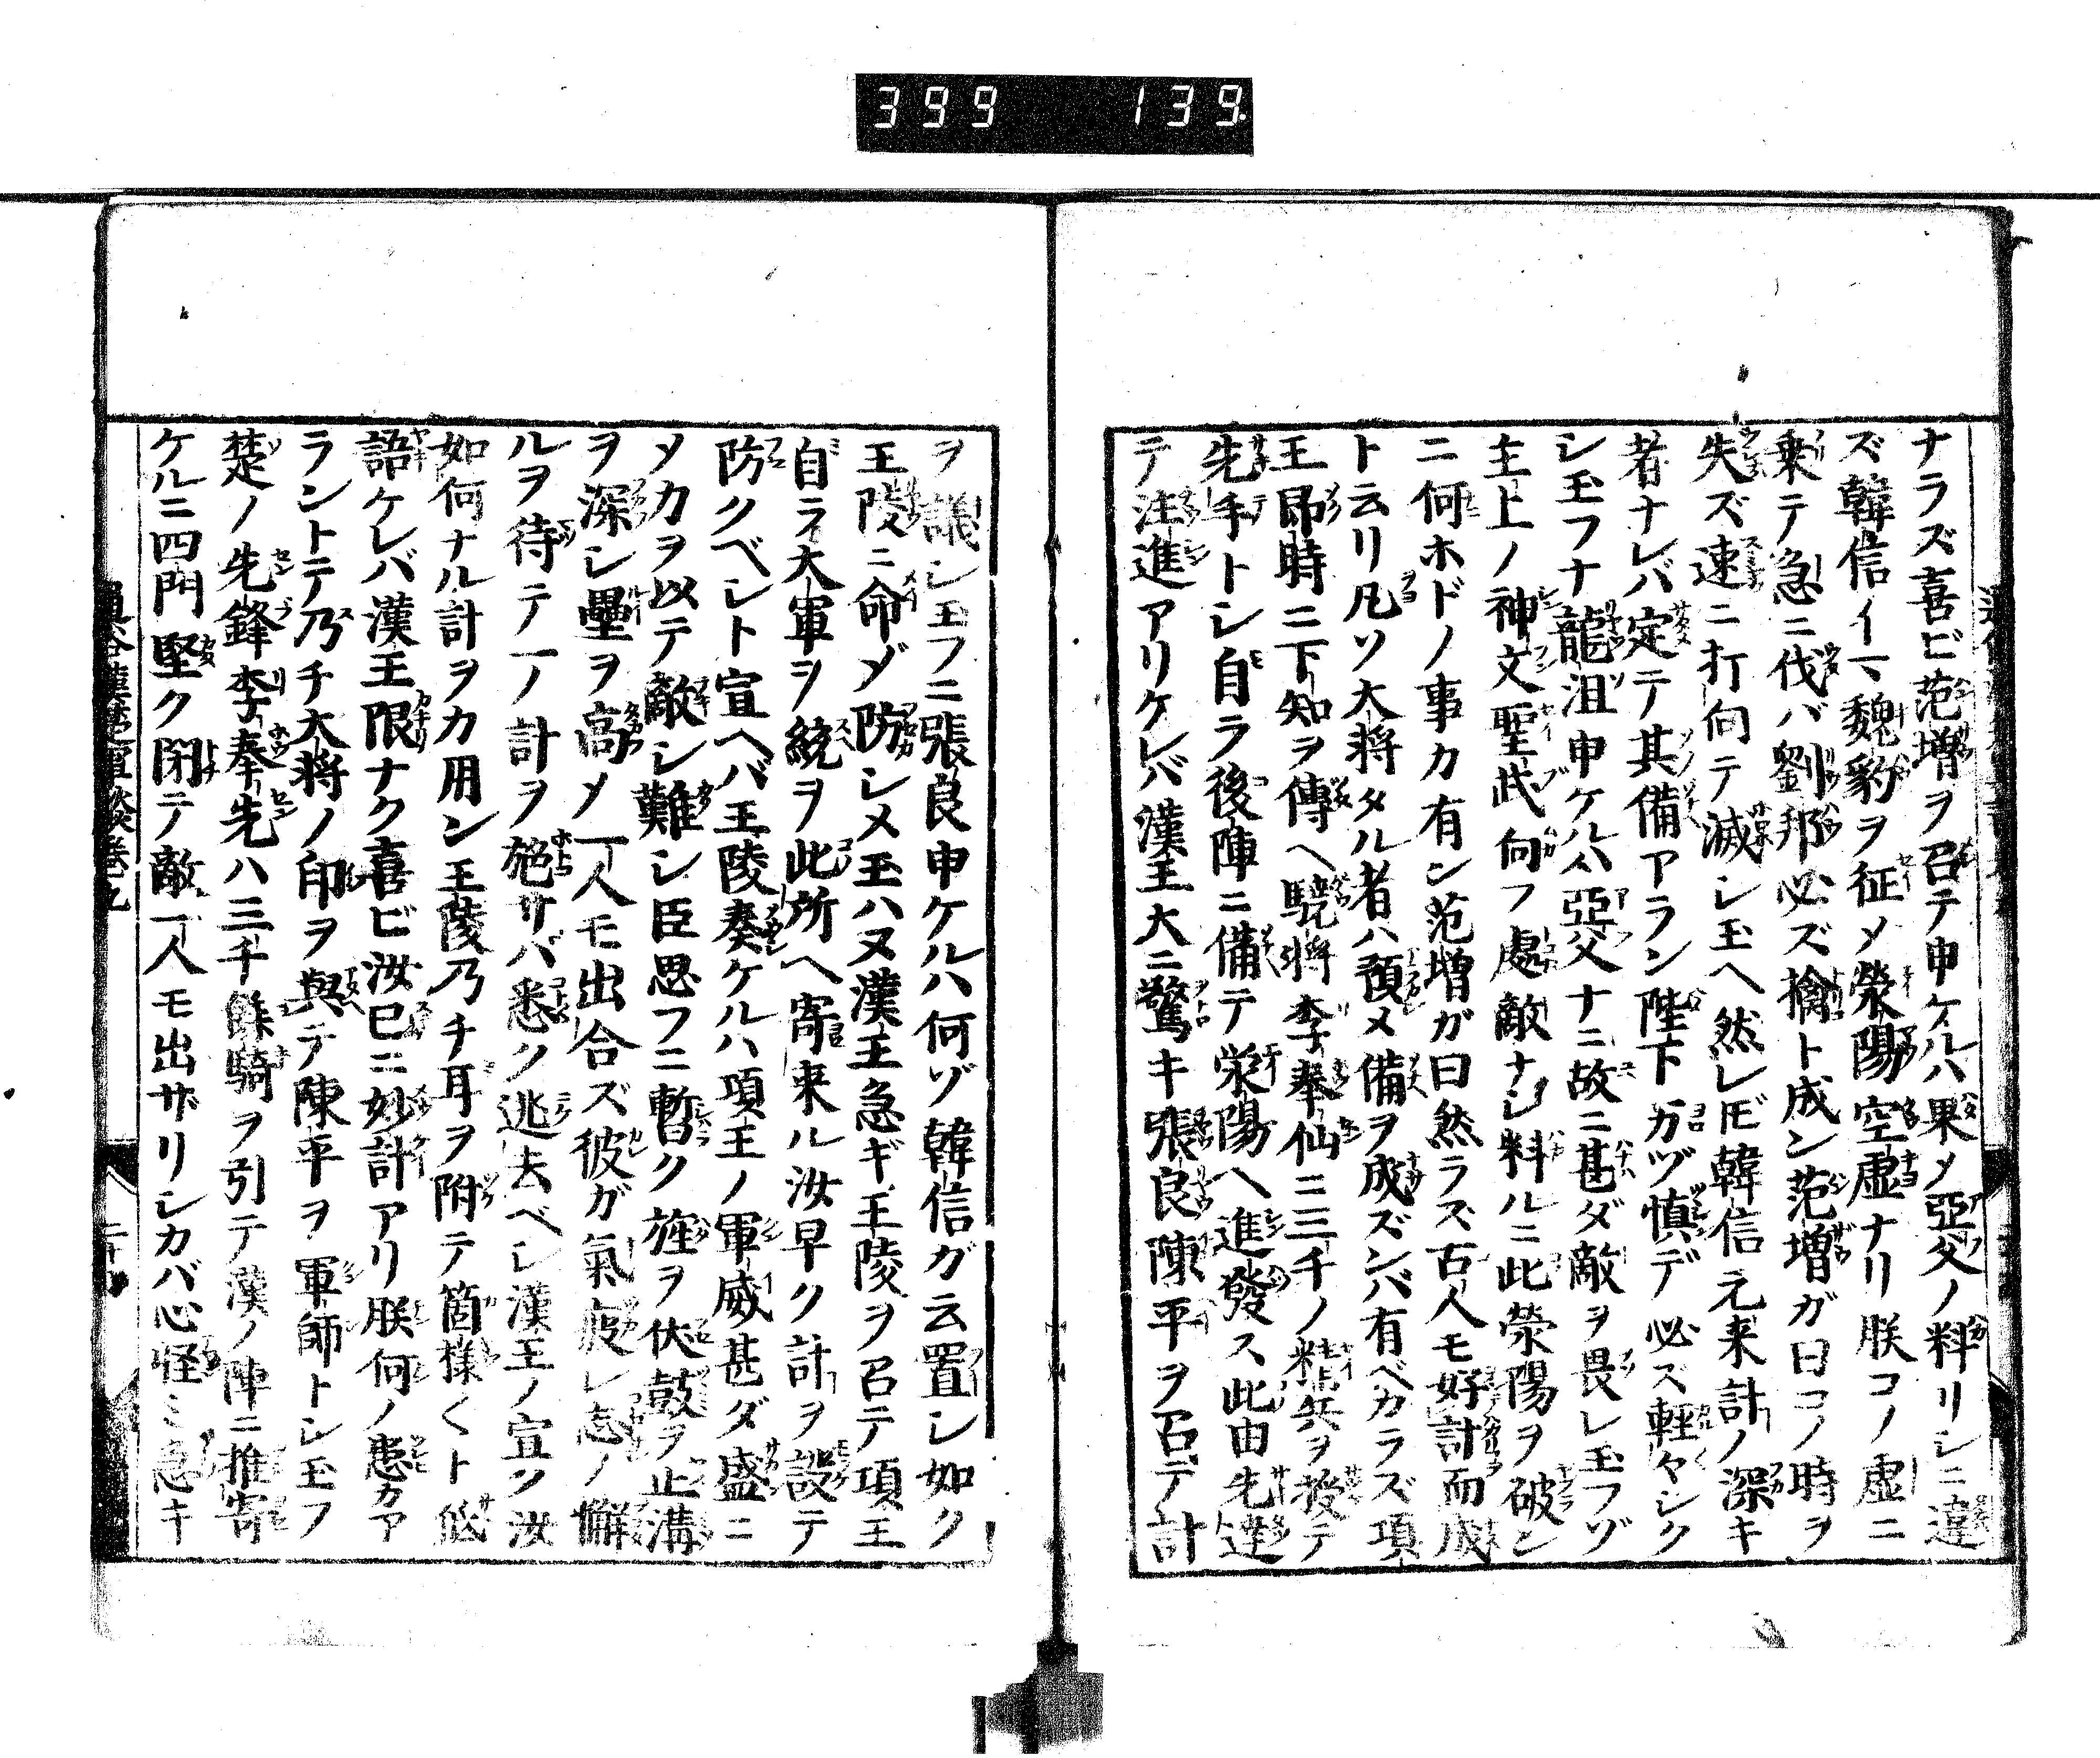 399 139
ナラズ喜ビ范増ヲ召テ申ケルハ果メ亞父ノ料リシニ違
ズ韓信イマ魏豹ヲ征メ滎陽空虚ナリ朕コノ虚ニ
乗テ急ニ伐バ劉邦必ズ擒ト成ン范増ガ曰コノ時ヲ
失ズ速ニ打向テ滅シ玉ヘ然レ𪜈韓信元来計ノ深キ
者ナレバ定テ其備アラン陛下カヅ慎デ必ス軽々シク
シ玉フナ龍沮申ケルハ亞父ナニ故ニ甚ダ敵ヲ畏レ玉フゾ
主上ノ神文聖武向フ處敵ナシ料ルニ此滎陽ヲ破ン
ニ何ホドノ事カ有ン范増ガ曰然ラズ古人モ好計而成
ト云リ凡ソ大将タル者ハ預メ備ヲ成ズンバ有ベカラズ項
王昂時ニ下知ヲ傳ヘ驍将李奉仙ニ三千ノ精兵ヲ授テ
先手トシ自ラ後陣ニ備テ栄陽ヘ進發ス此由先達
テ注進アリケレバ漢王大ニ驚キ張良陳平ヲ召テ計
ヲ議シ玉フニ張良申ケルハ何ゾ韓信ガ云置シ如ク
王陵ニ命ヂ防シメ玉ハヌ漢王急ギ王陵ヲ召テ項王
自ラ大軍ヲ統ヲ此所ヘ寄来ル汝早ク計ヲ設テ
防クベシト宣ヘバ王陵奏ケルハ項王ノ軍威甚ダ盛ニ
メカヲ以テ敵シ難シ臣思フニ暫ク旌ヲ伏鼓ヲ止溝
ヲ深シ壘ヲ高メ一人モ出合ズ彼ガ氣疲レ志ノ懈
ルヲ待テ一ノ計ヲ施サバ悉ク逃去ベシ漢王ノ宣ク汝
如何ナル計ヲカ用ン王陵乃チ耳ヲ附テ箇様々々ト低
語ケレバ漢王限ナク喜ビ汝已ニ妙計アリ朕何ノ患カア
ラントテ乃チ大将ノ印ヲ與テ陳平ヲ軍師トシ玉フ
楚ノ先鋒李奉先ハ三千餘騎ヲ引テ漢ノ陣ニ推寄
ケルニ四門堅ク閉テ敵一人モ出ザリシカバ心怪ミ急キ